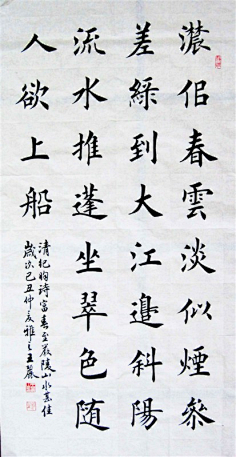 濃佀春雲淡似煙參
差綠到大江邊斜陽
流水推蓬坐翠色随
人欲上船
清紀昀詩富春至嚴陵山水甚佳
歲次己丑仲夏雅之王麗